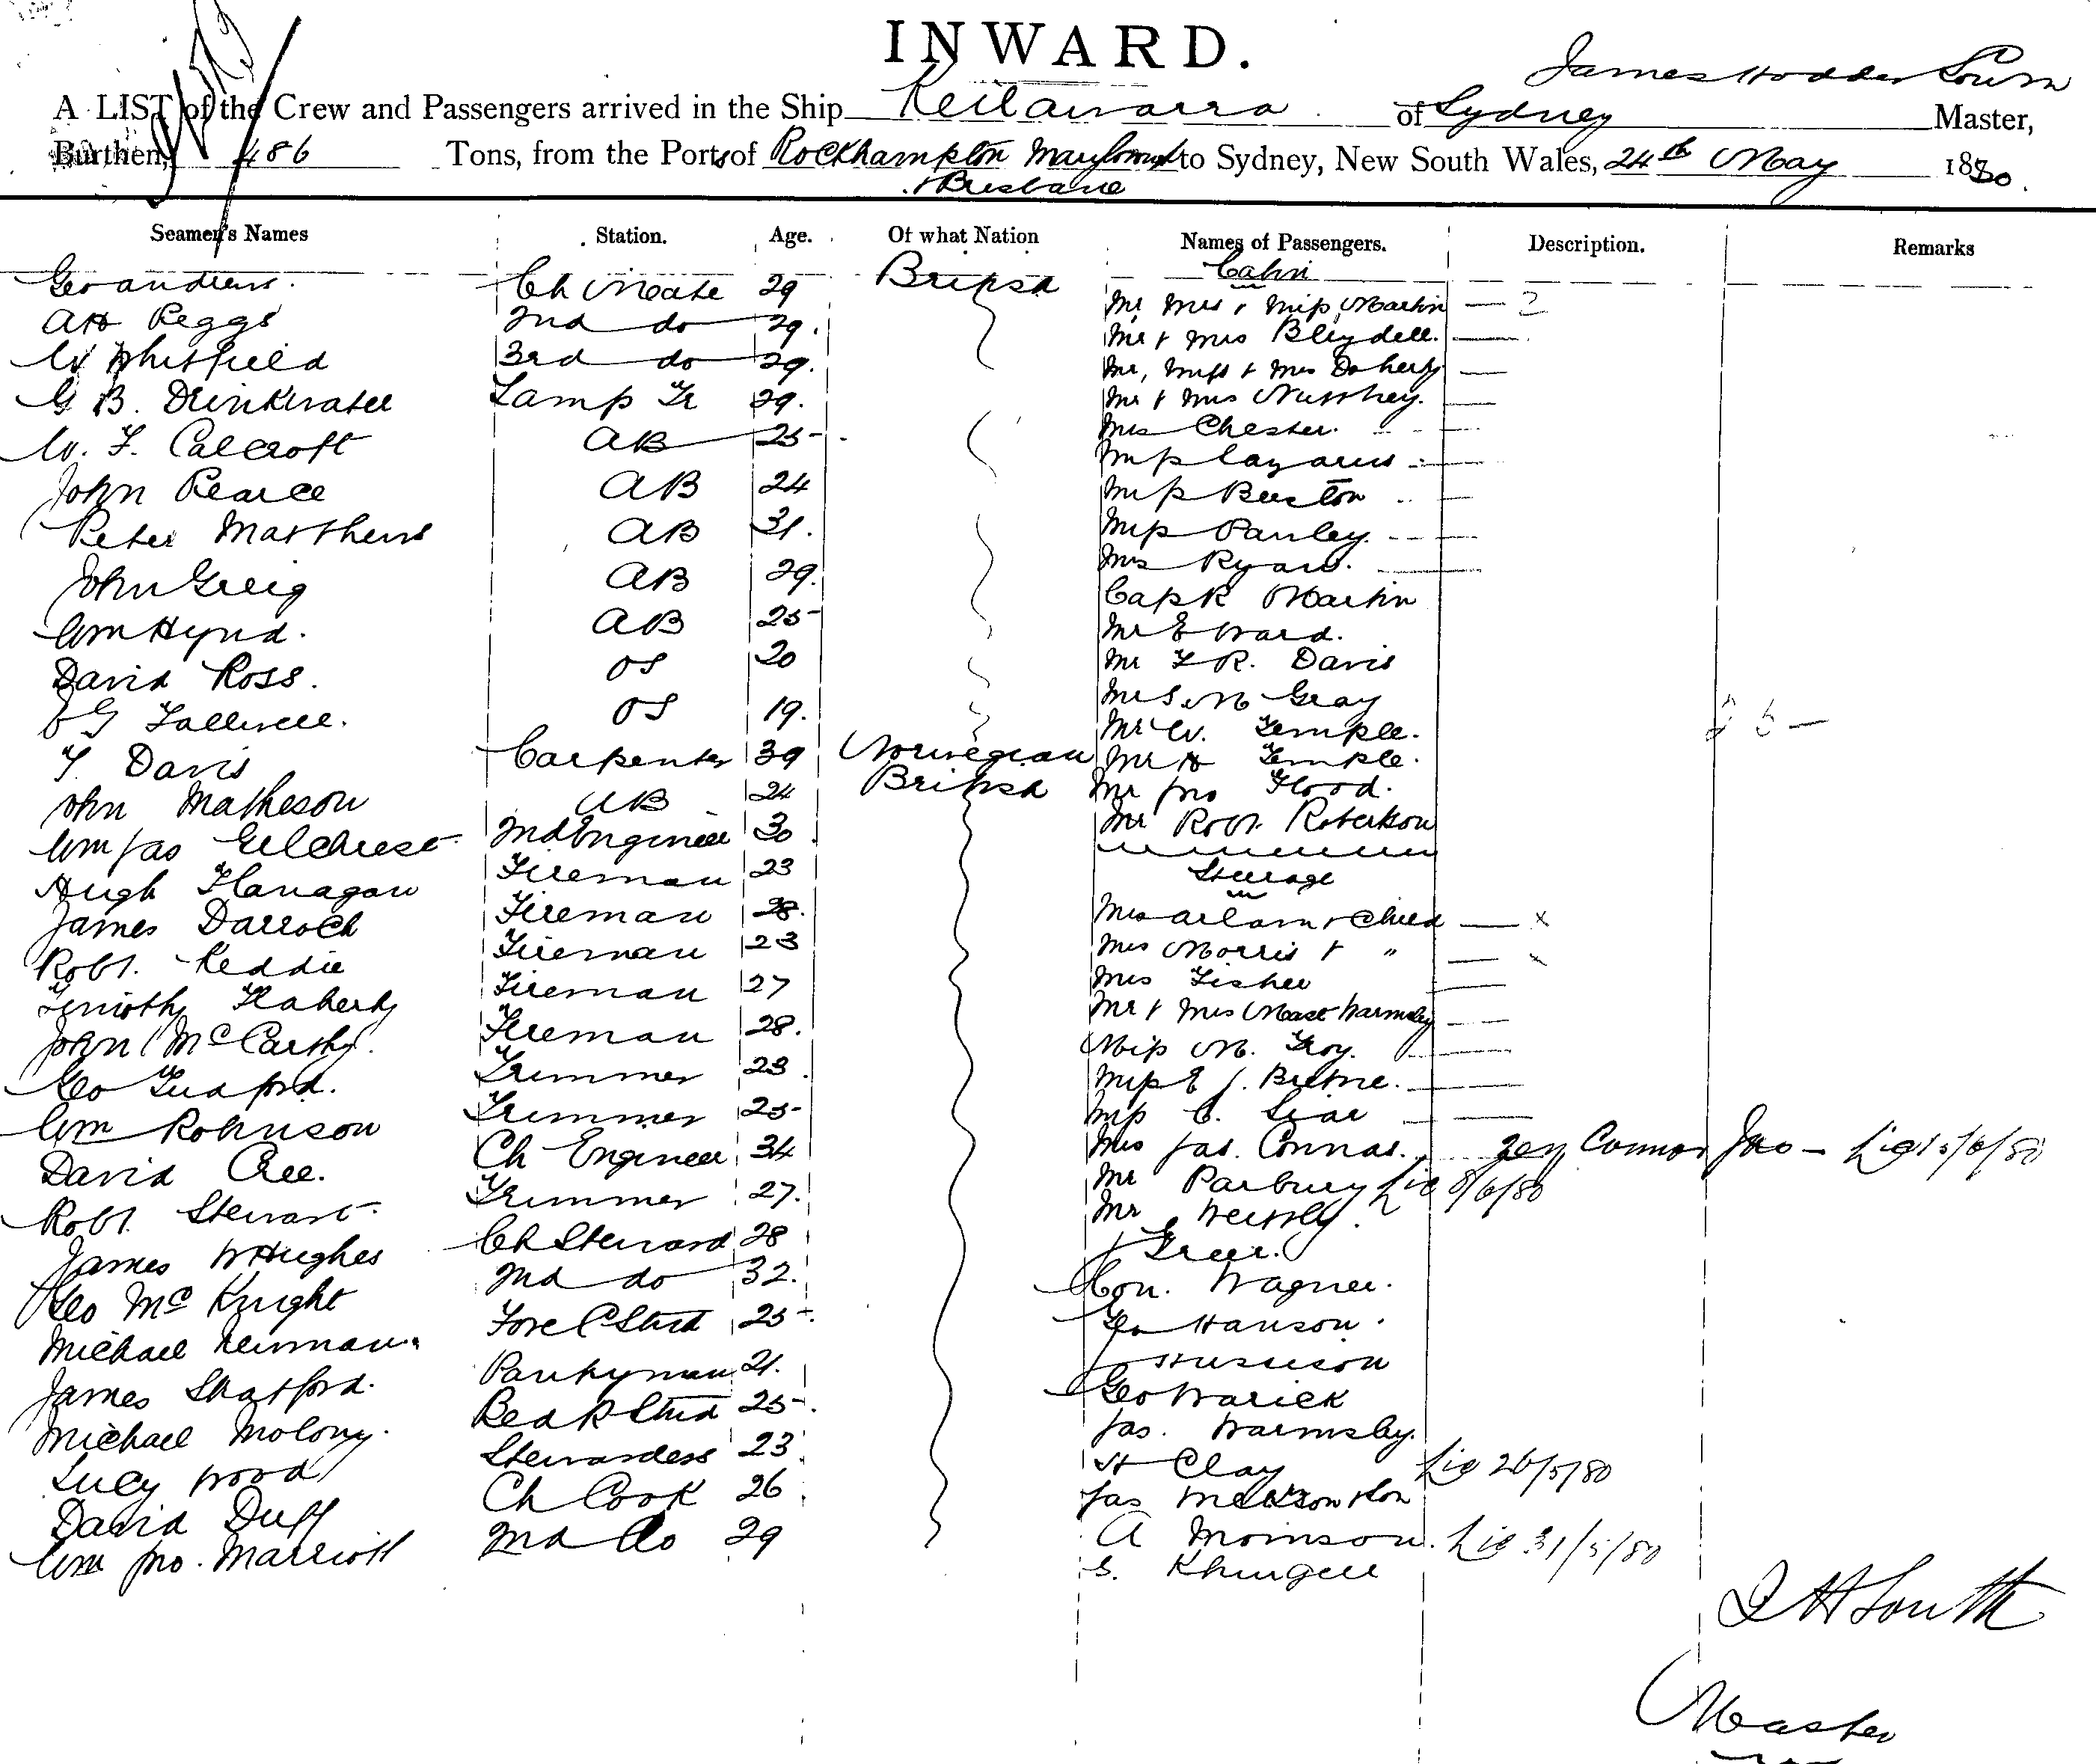 INWARD.
James Hodder South
A LIST of the Crew and Passengers arrived in the Ship Keilawarra of Sydney Master,
Burthen, 486 Tons, from the Ports of Rockhampton Maryborough to Sydney, New South Wales, 24th May 1880.
& Brisbane
Seamen's Names Station. Age. Of what Nation Names of Passengers. Description. Remarks
Cabin
Geo Andrews. Ch Mate 29 British Mr Mrs & Miss Martin — 2
AH Peggs 2nd do 29. Mr & Mrs Bleydell. —
W Whitfield 3rd do 29. Mr, Miss & Mrs Doherty —
G B. Drinkwater Lamp Tr 29. Mr & Mrs —
W. F. Calcroft AB 25 Mrs Chester. —
John Pearce AB 24 Miss Lazarus —
Peter Matthews AB 31. Miss Beeston —
John Greig AB 29. Miss Pauley. —
Wm Hynd. AB 25 Mrs Ryan. —
David Ross. OS 20 Capt Martin
G OS 19. Mr E Ward.
T. Davis Carpenter 39 Norwegian Mr F R. Davis
John Matheson AB 24 British Mr S. M Gray
Wm Jas Gilchrist 2nd Engineer 30 Mr W. Temple.
Hugh Flanagan Fireman 23 Mr H Temple.
James Darroch Fireman 28. Mr Jno Flood.
Robt. Keddie Fireman 23 Mr Robt. Robertson
Timothy Flaherty Fireman 27 Steerage
John McCarthy. Fireman 28. Mrs Adam & Child — x
Geo Trimmer 23 Mrs Morris & " — x
Wm Robinson Trimmer 25 Mrs Fisher —
David Cree. Ch Engineer 34 Mr & Mrs Mast Warmsley —
Robt. Stewart. Trimmer 27. Miss M. Troy. —
James W Hughes Ch Steward 28 Miss E J. —
Geo McKnight 2nd do 32. Miss C. —
Michael Newman. Fore C Stwd 25 Mrs Jas. Connor. Connor Jno — Lic 15/6/80
James Shatford. Pantryman 21. Mr Parbury Lic 8/6/80
Michael Molony. Bed R Stwd 25 Mr
Lucy Wood Stewardess 23 J Greer.
David Duff Ch Cook 26 Con. Wagner.
Wm Jno. Marriott 2nd do 29 Geo Hanson.
J
Geo Warick
Jas. Warmsley.
H Clay Lic 26/5/80
Jas & Son
A Lic 31/5/80
S.
J H South
Master